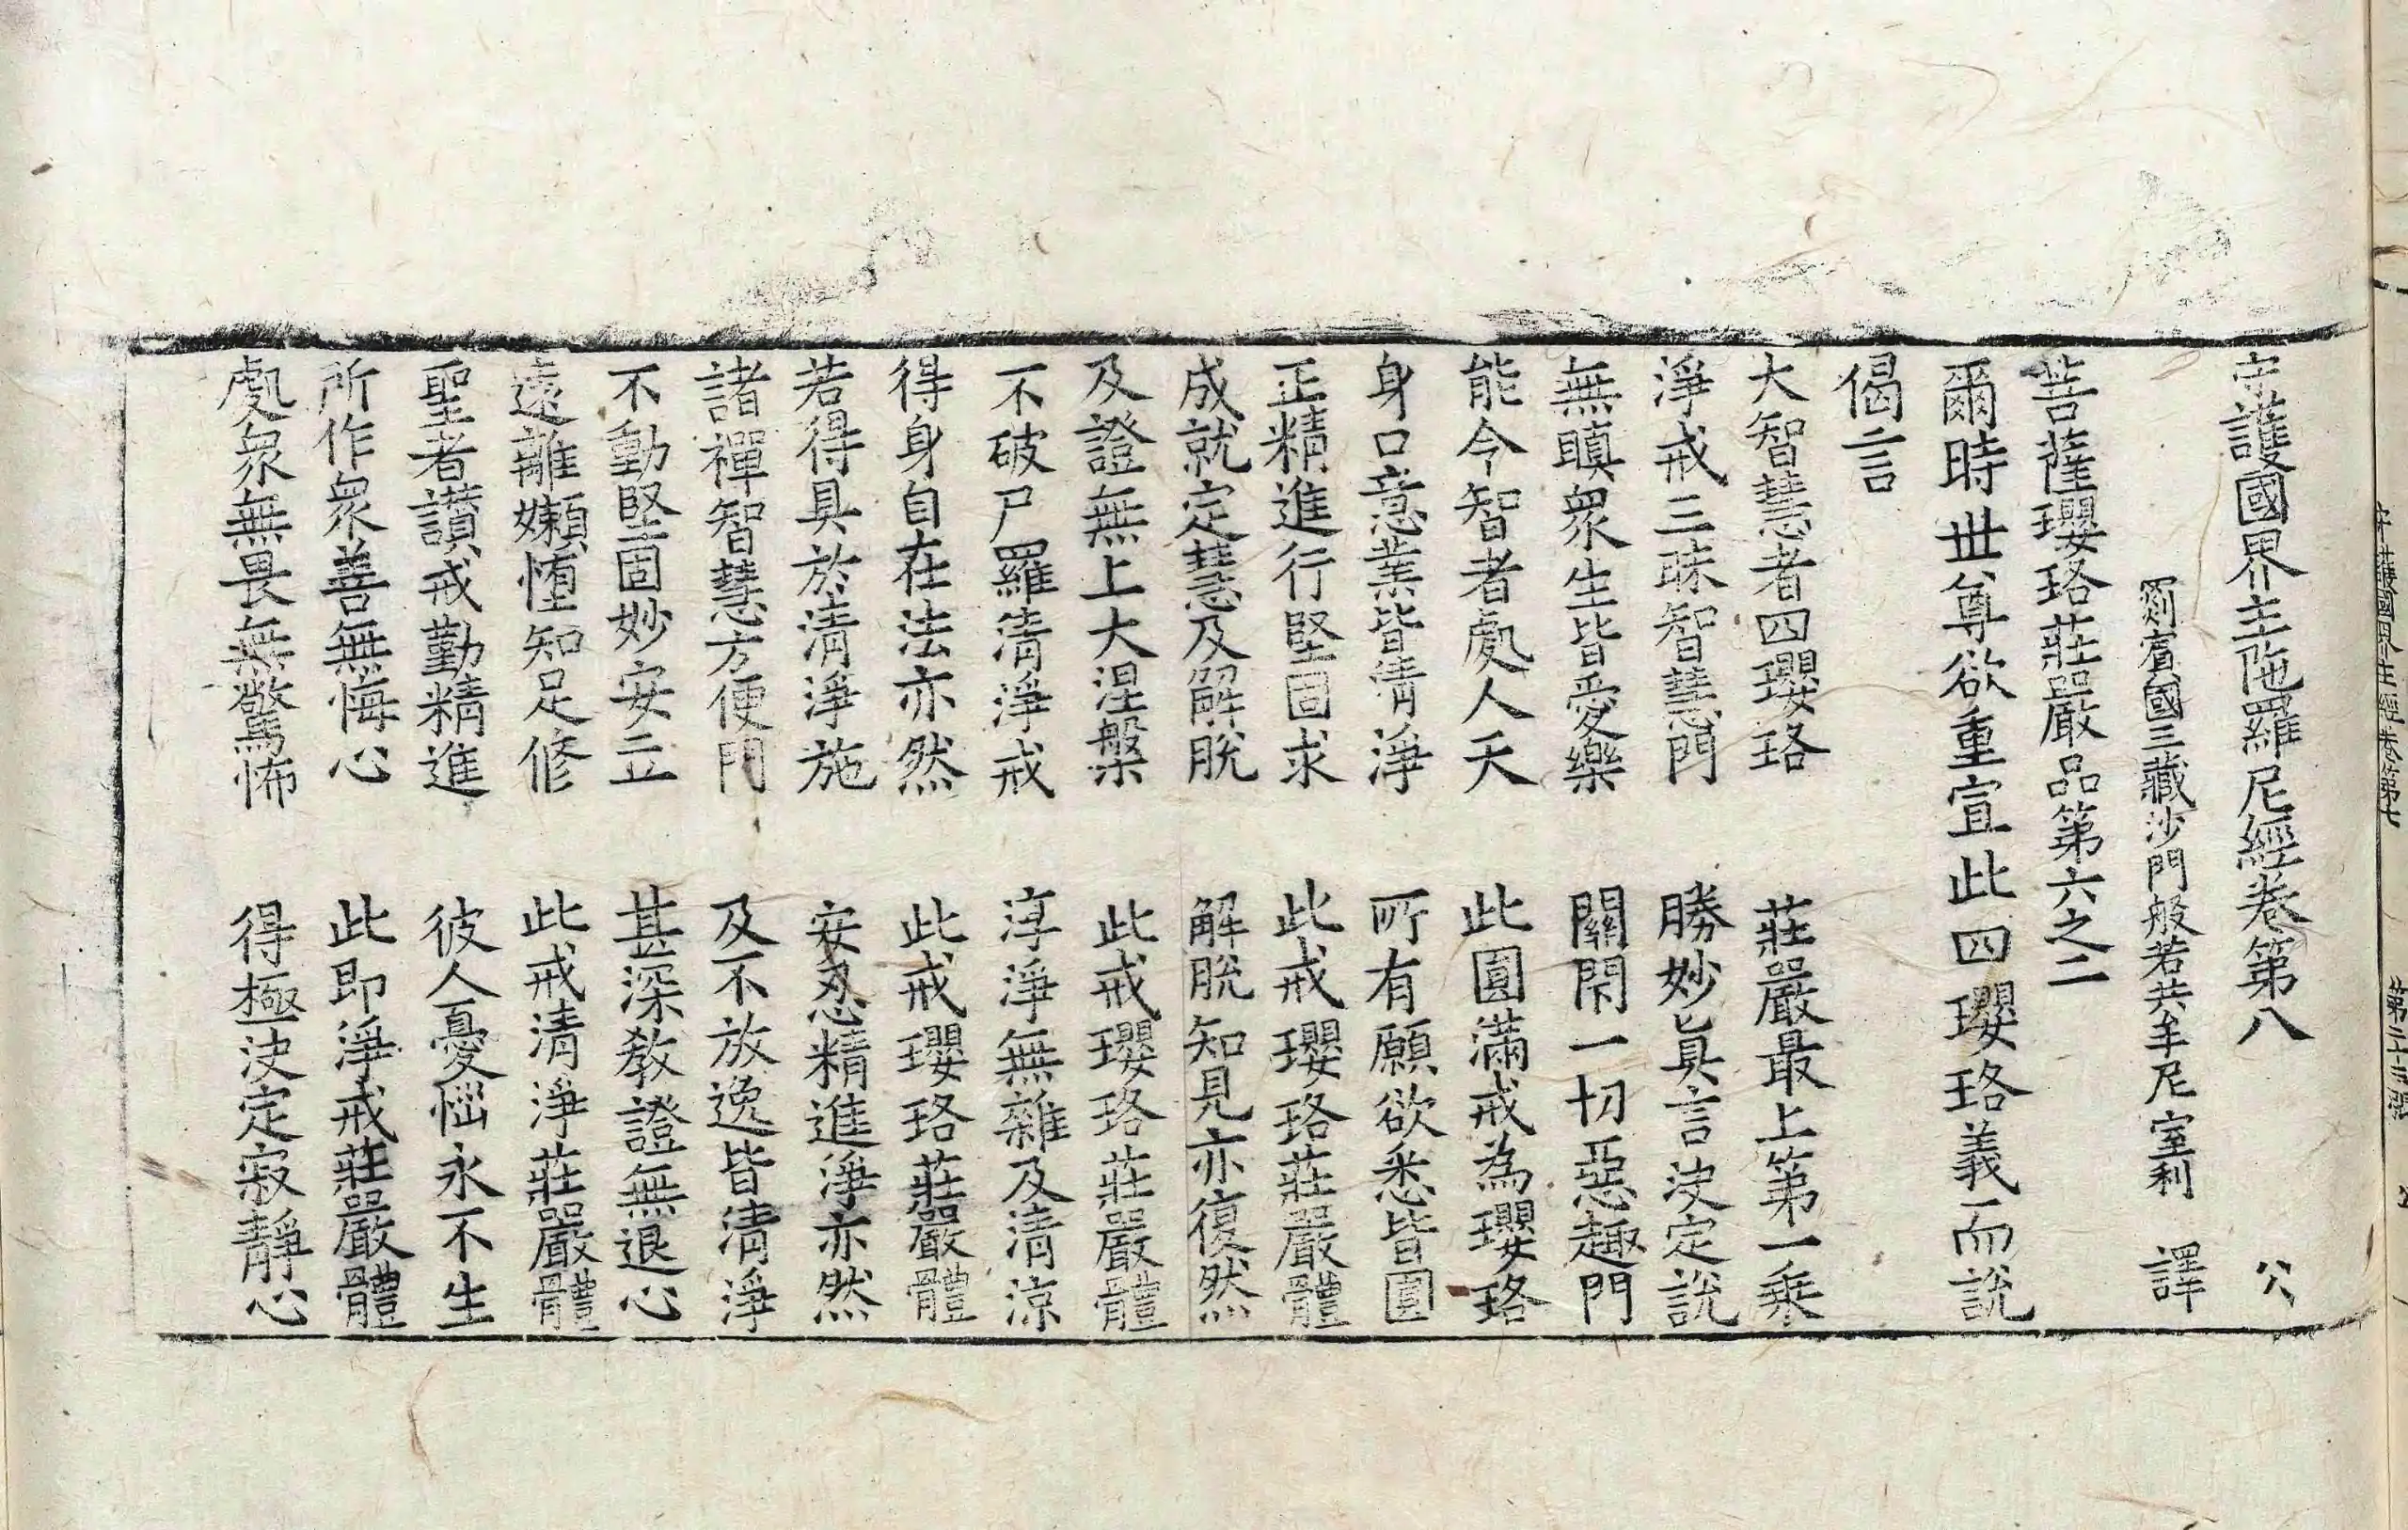 守護國界主陁羅尼經卷第八 公
罽賓國三藏沙門般若共牟尼室利 譯
菩薩瓔珞莊嚴品第六之二
爾時世尊欲重宣此四瓔珞義而說
偈言
大智慧者四瓔珞 莊嚴最上第一乘
淨戒三昧智慧門 勝妙真言決定說
無瞋衆生皆愛樂 關閇一切惡趣門
能令智者處人天 此圓滿戒為瓔珞
身口意業皆清淨 所有願欲悉皆圓
正精進行堅固求 此戒瓔珞莊嚴體
成就定慧及解脫 解脫知見亦復然
及證無上大涅槃 此戒瓔珞莊嚴體
不破尸羅清淨戒 淳淨無雜及清涼
得身自在法亦然 此戒瓔珞莊嚴體
若得具於清淨施 安忍精進淨亦然
諸禪智慧方便門 及不放逸皆清淨
不動堅固妙安立 甚深教證無退心
遠離嬾惰知足修 此戒清淨莊嚴體
聖者讚戒勤精進 彼人憂惱永不生
所作衆善無悔心 此即淨戒莊嚴體
處衆無畏無驚怖 得極決定寂靜心